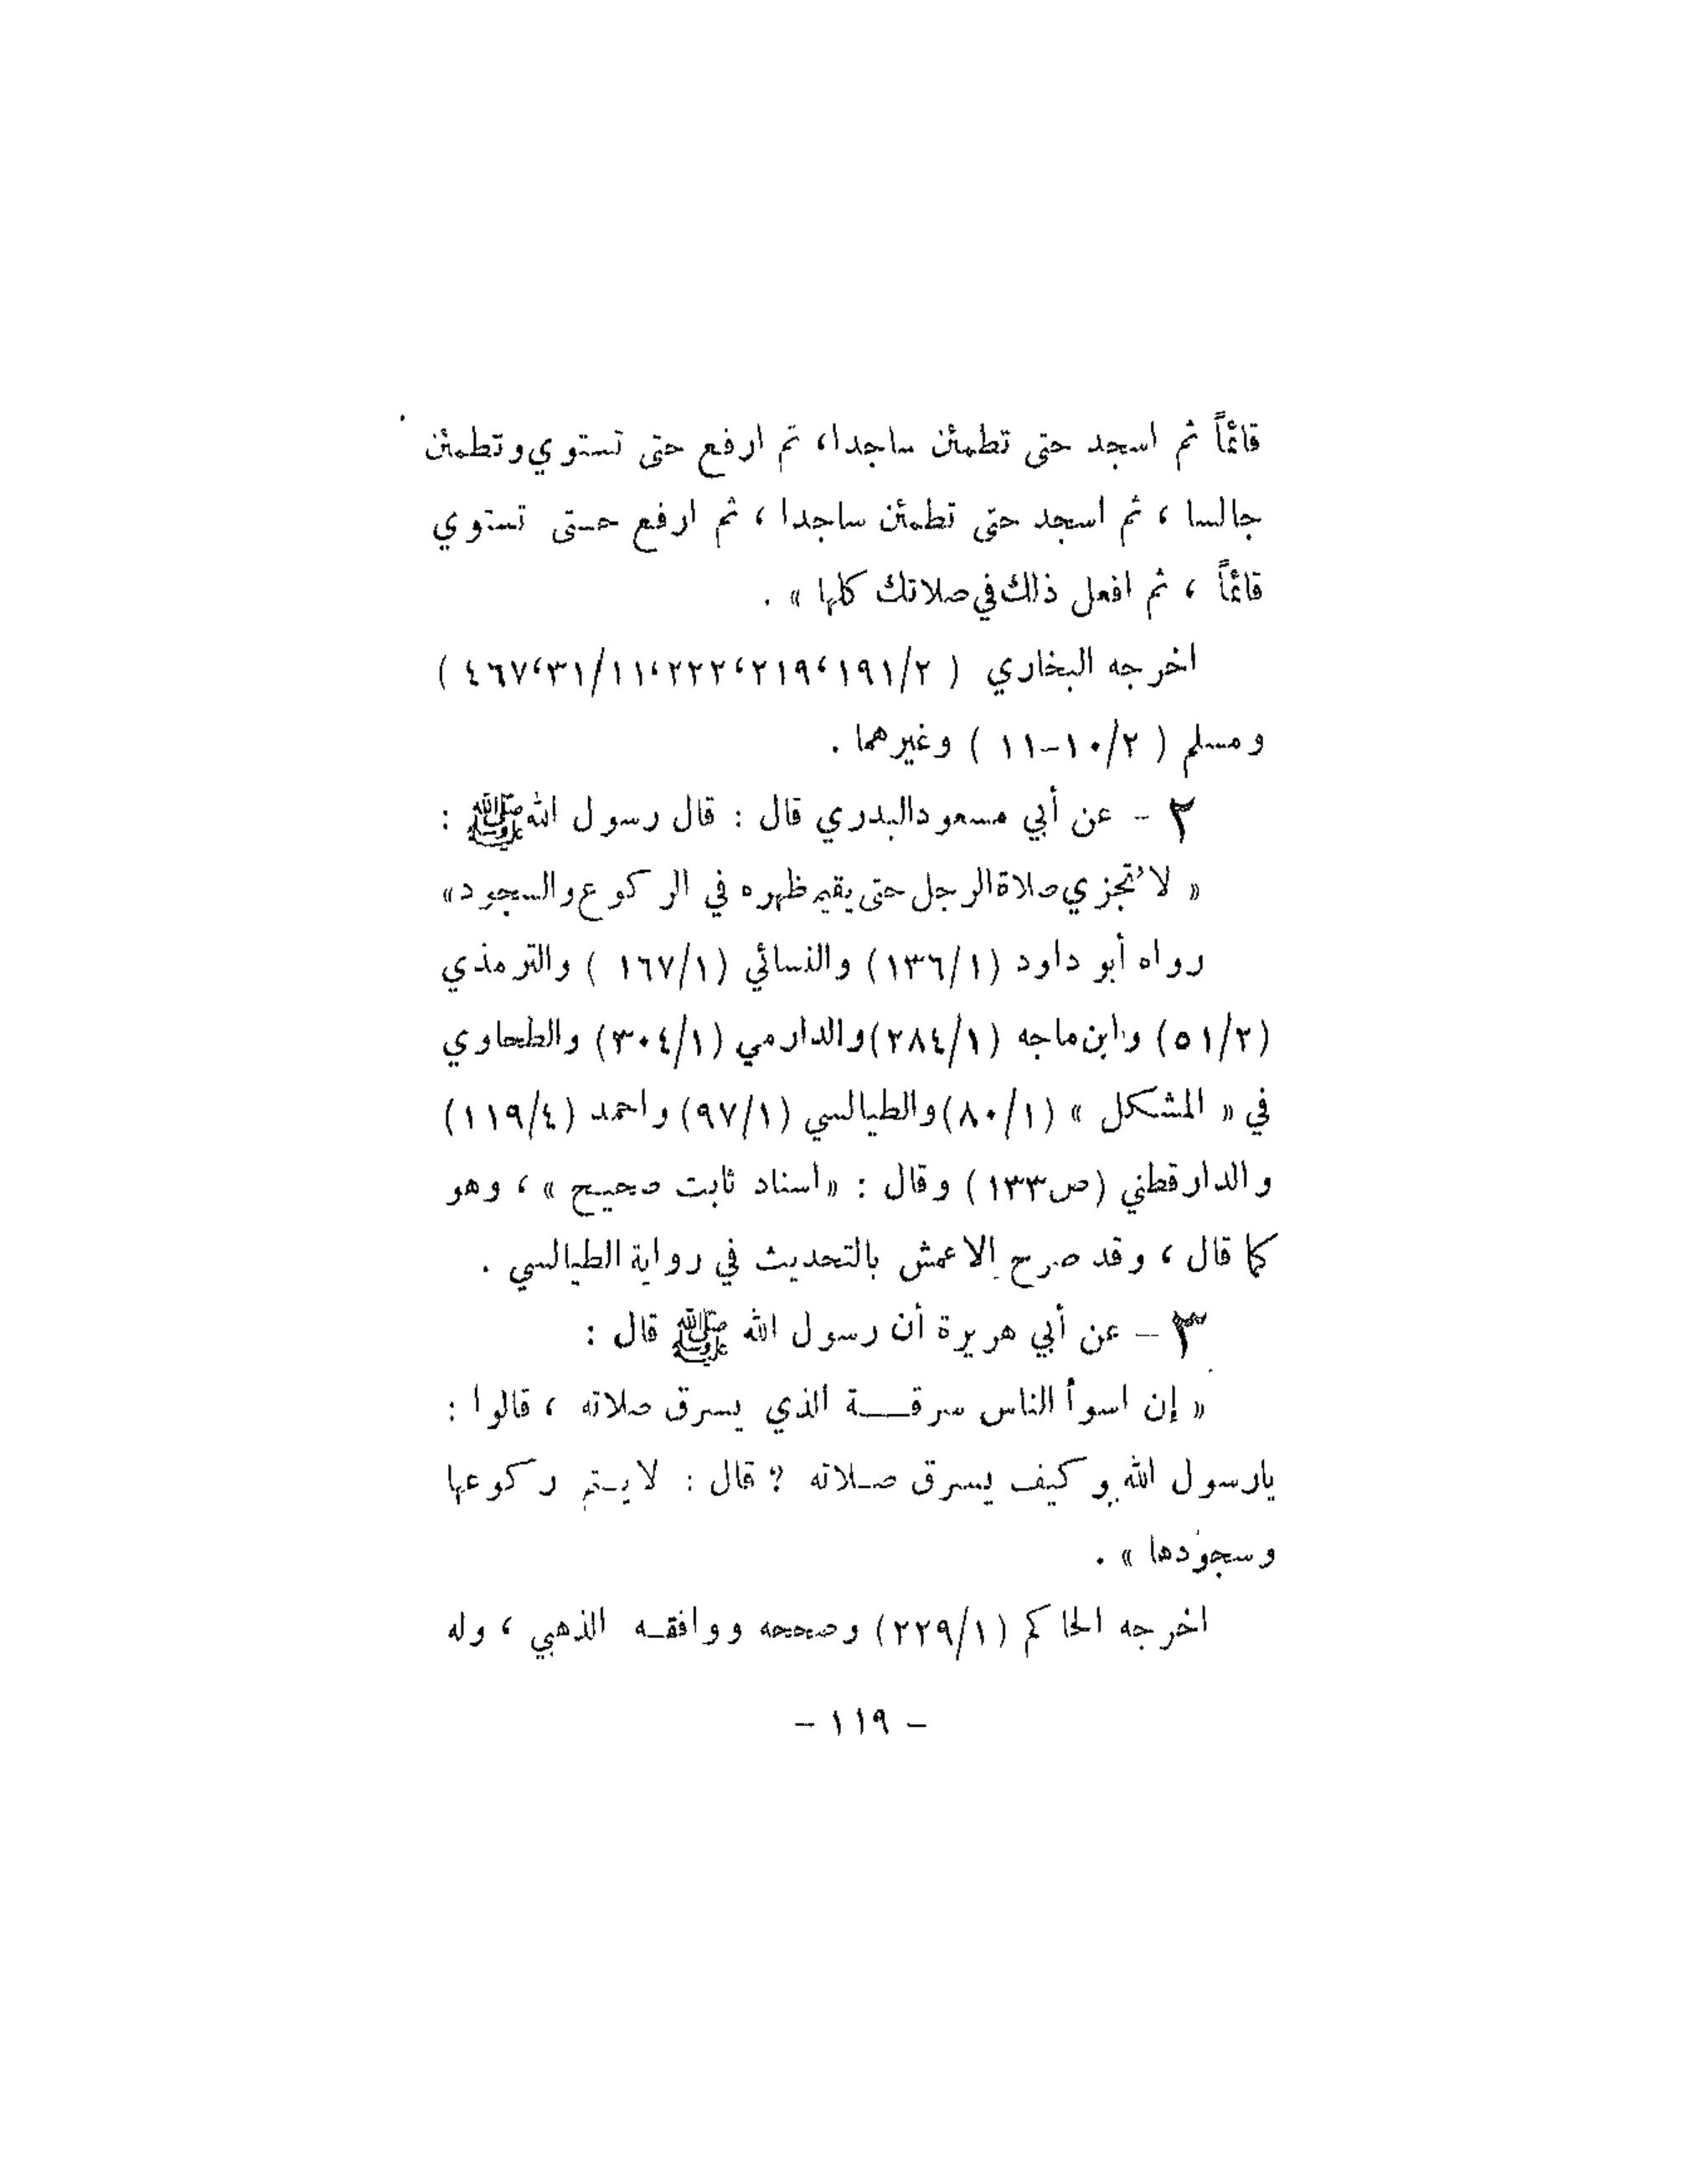 قائماً ثم اسجد حتى تطمئن ساجدا، ثم ارفع حتى تستوي وتطمئن
جالسا ، ثم اسجد حتى تطمئن ساجدا ، ثم ارفع حـتى تستوي
قائماً ، ثم افعل ذلك في صلاتك كلها » .
اخرجه البخاري ( ٢/ ١٩١، ٢١٩، ٢٢٢، ١١/ ٣١، ٤٦٧ )
ومسلم ( ٢/ ١٠-١١ ) وغيرهما .
٢ - عن أبي مسعود البدري قال : قال رسول الله ﷺ :
« لا تُجزي صلاة الرجل حتى يقيم ظهره في الركوع والسجود»
رواه أبو داود (١/ ١٣٦) والنسائي (١/ ١٦٧ ) والترمذي
(٢/ ٥١) وابن ماجه (١/ ٢٨٤) والدارمي (١/ ٣٠٤) والطحاوي
في « المشكل » (١/ ٨٠) والطيالسي (١/ ٩٧) واحمد (٤/ ١١٩)
والدارقطني (ص١٣٣) وقال : «اسناد ثابت صحيح » ، وهو
كما قال ، وقد صرح الاعمش بالتحديث في رواية الطيالسي .
٣ - عن أبي هريرة أن رسول الله ﷺ قال :
« إن اسوأ الناس سرقـــة الذي يسرق صلاته ، قالوا :
يارسول الله وكيف يسرق صـلاته ؟ قال : لايـتم ركوعها
وسجودها » .
اخرجه الحاكم (١/ ٢٢٩) وصححه ووافقـه الذهبي ، وله
- ١١٩ -